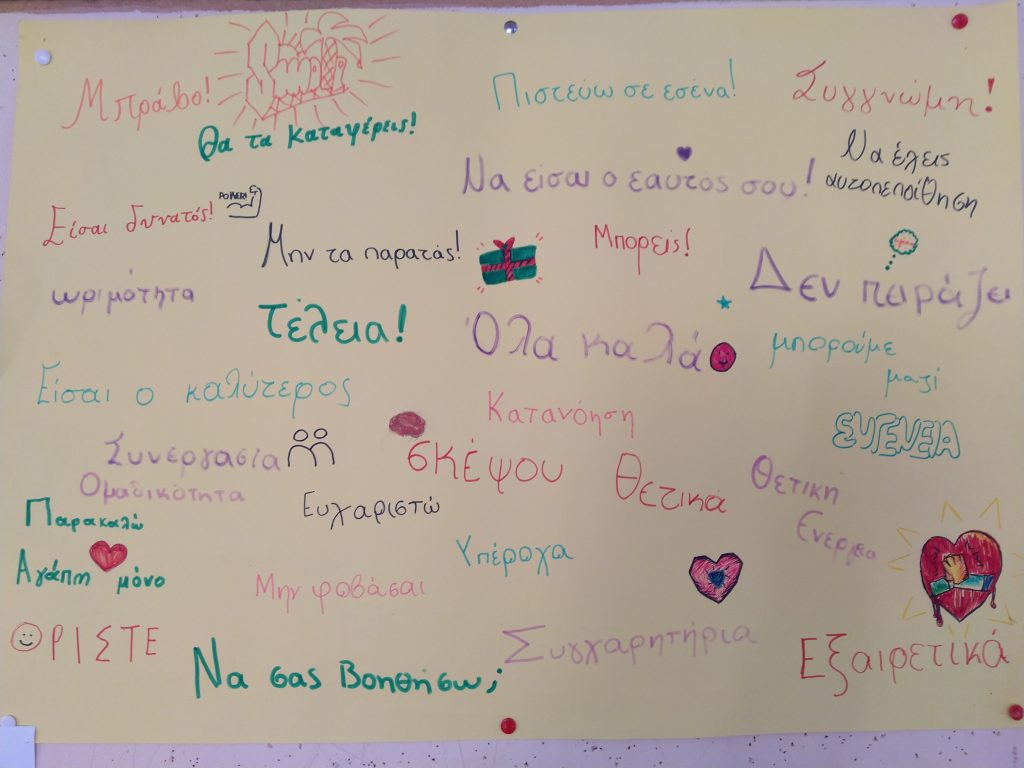 Μπράβο!
Smile
Θα τα καταφέρεις!
Πιστεύω σε εσένα!
Συγγνώμη!
Να είσαι ο εαυτός σου!
Να έχεις
αυτοπεποίθηση
Είσαι δυνατός!
POWER!
Μην τα παρατάς!
Μπορείς!
Δεν πειράζει
ωριμότητα
Τέλεια!
Όλα καλά
μπορούμε
μαζί
Είσαι ο καλύτερος
Κατανόηση
ΕΥΓΕΝΕΙΑ
Συνεργασία
Ομαδικότητα
σκέψου θετικά
Θετική
Ενέργεια
Παρακαλώ
Ευχαριστώ
Αγάπη μόνο
Υπέροχα
Μην φοβάσαι
ΟΡΙΣΤΕ
Να σας βοηθήσω;
Συγχαρητήρια
Εξαιρετικά